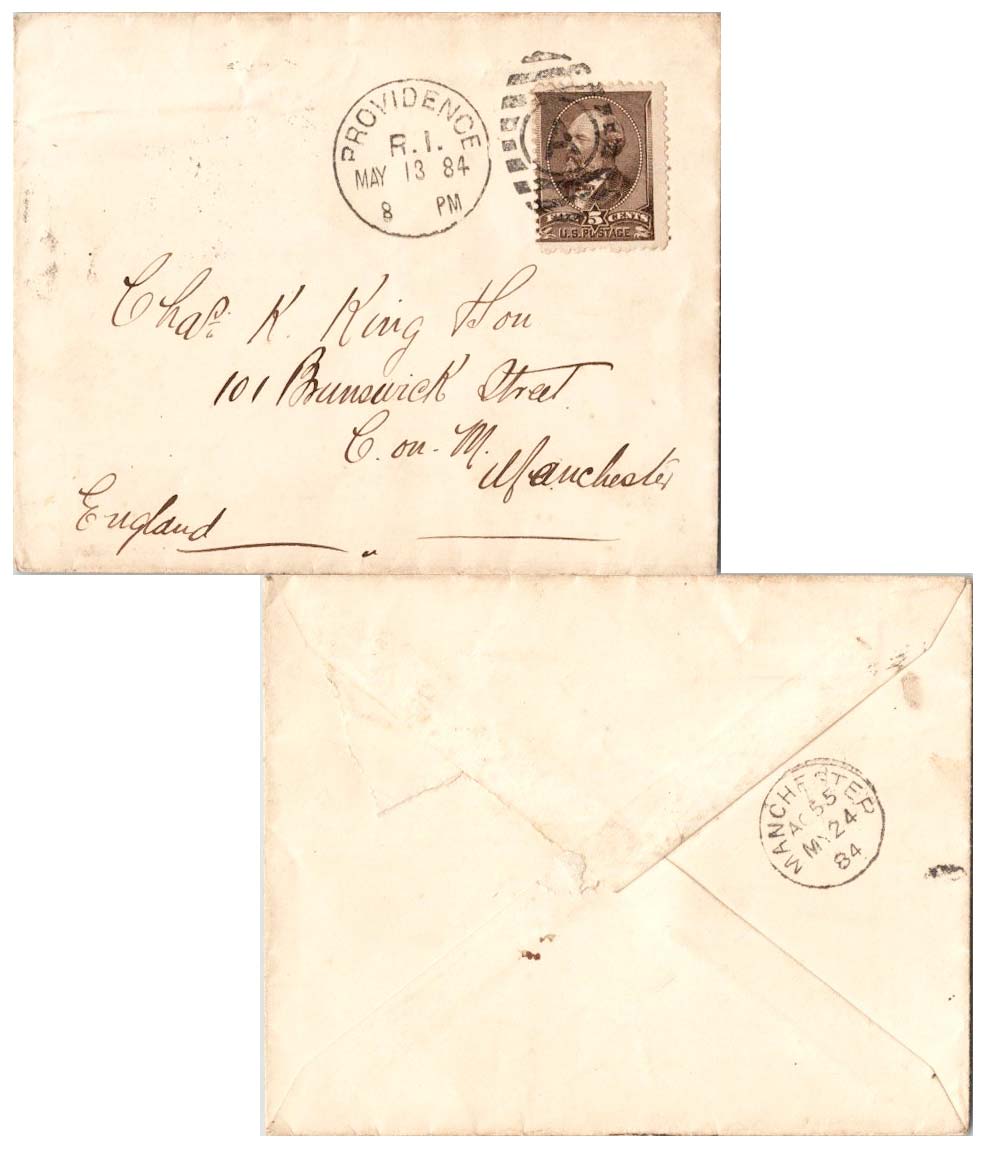 PROVIDENCE
R.I.
MAY 13 84
8 PM
5 CENTS
U.S. POSTAGE
Chas. K. King Hon
101 Brunswick Street
C. on. M.
Manchester
England
MANCHESTER
55
MY 24
84